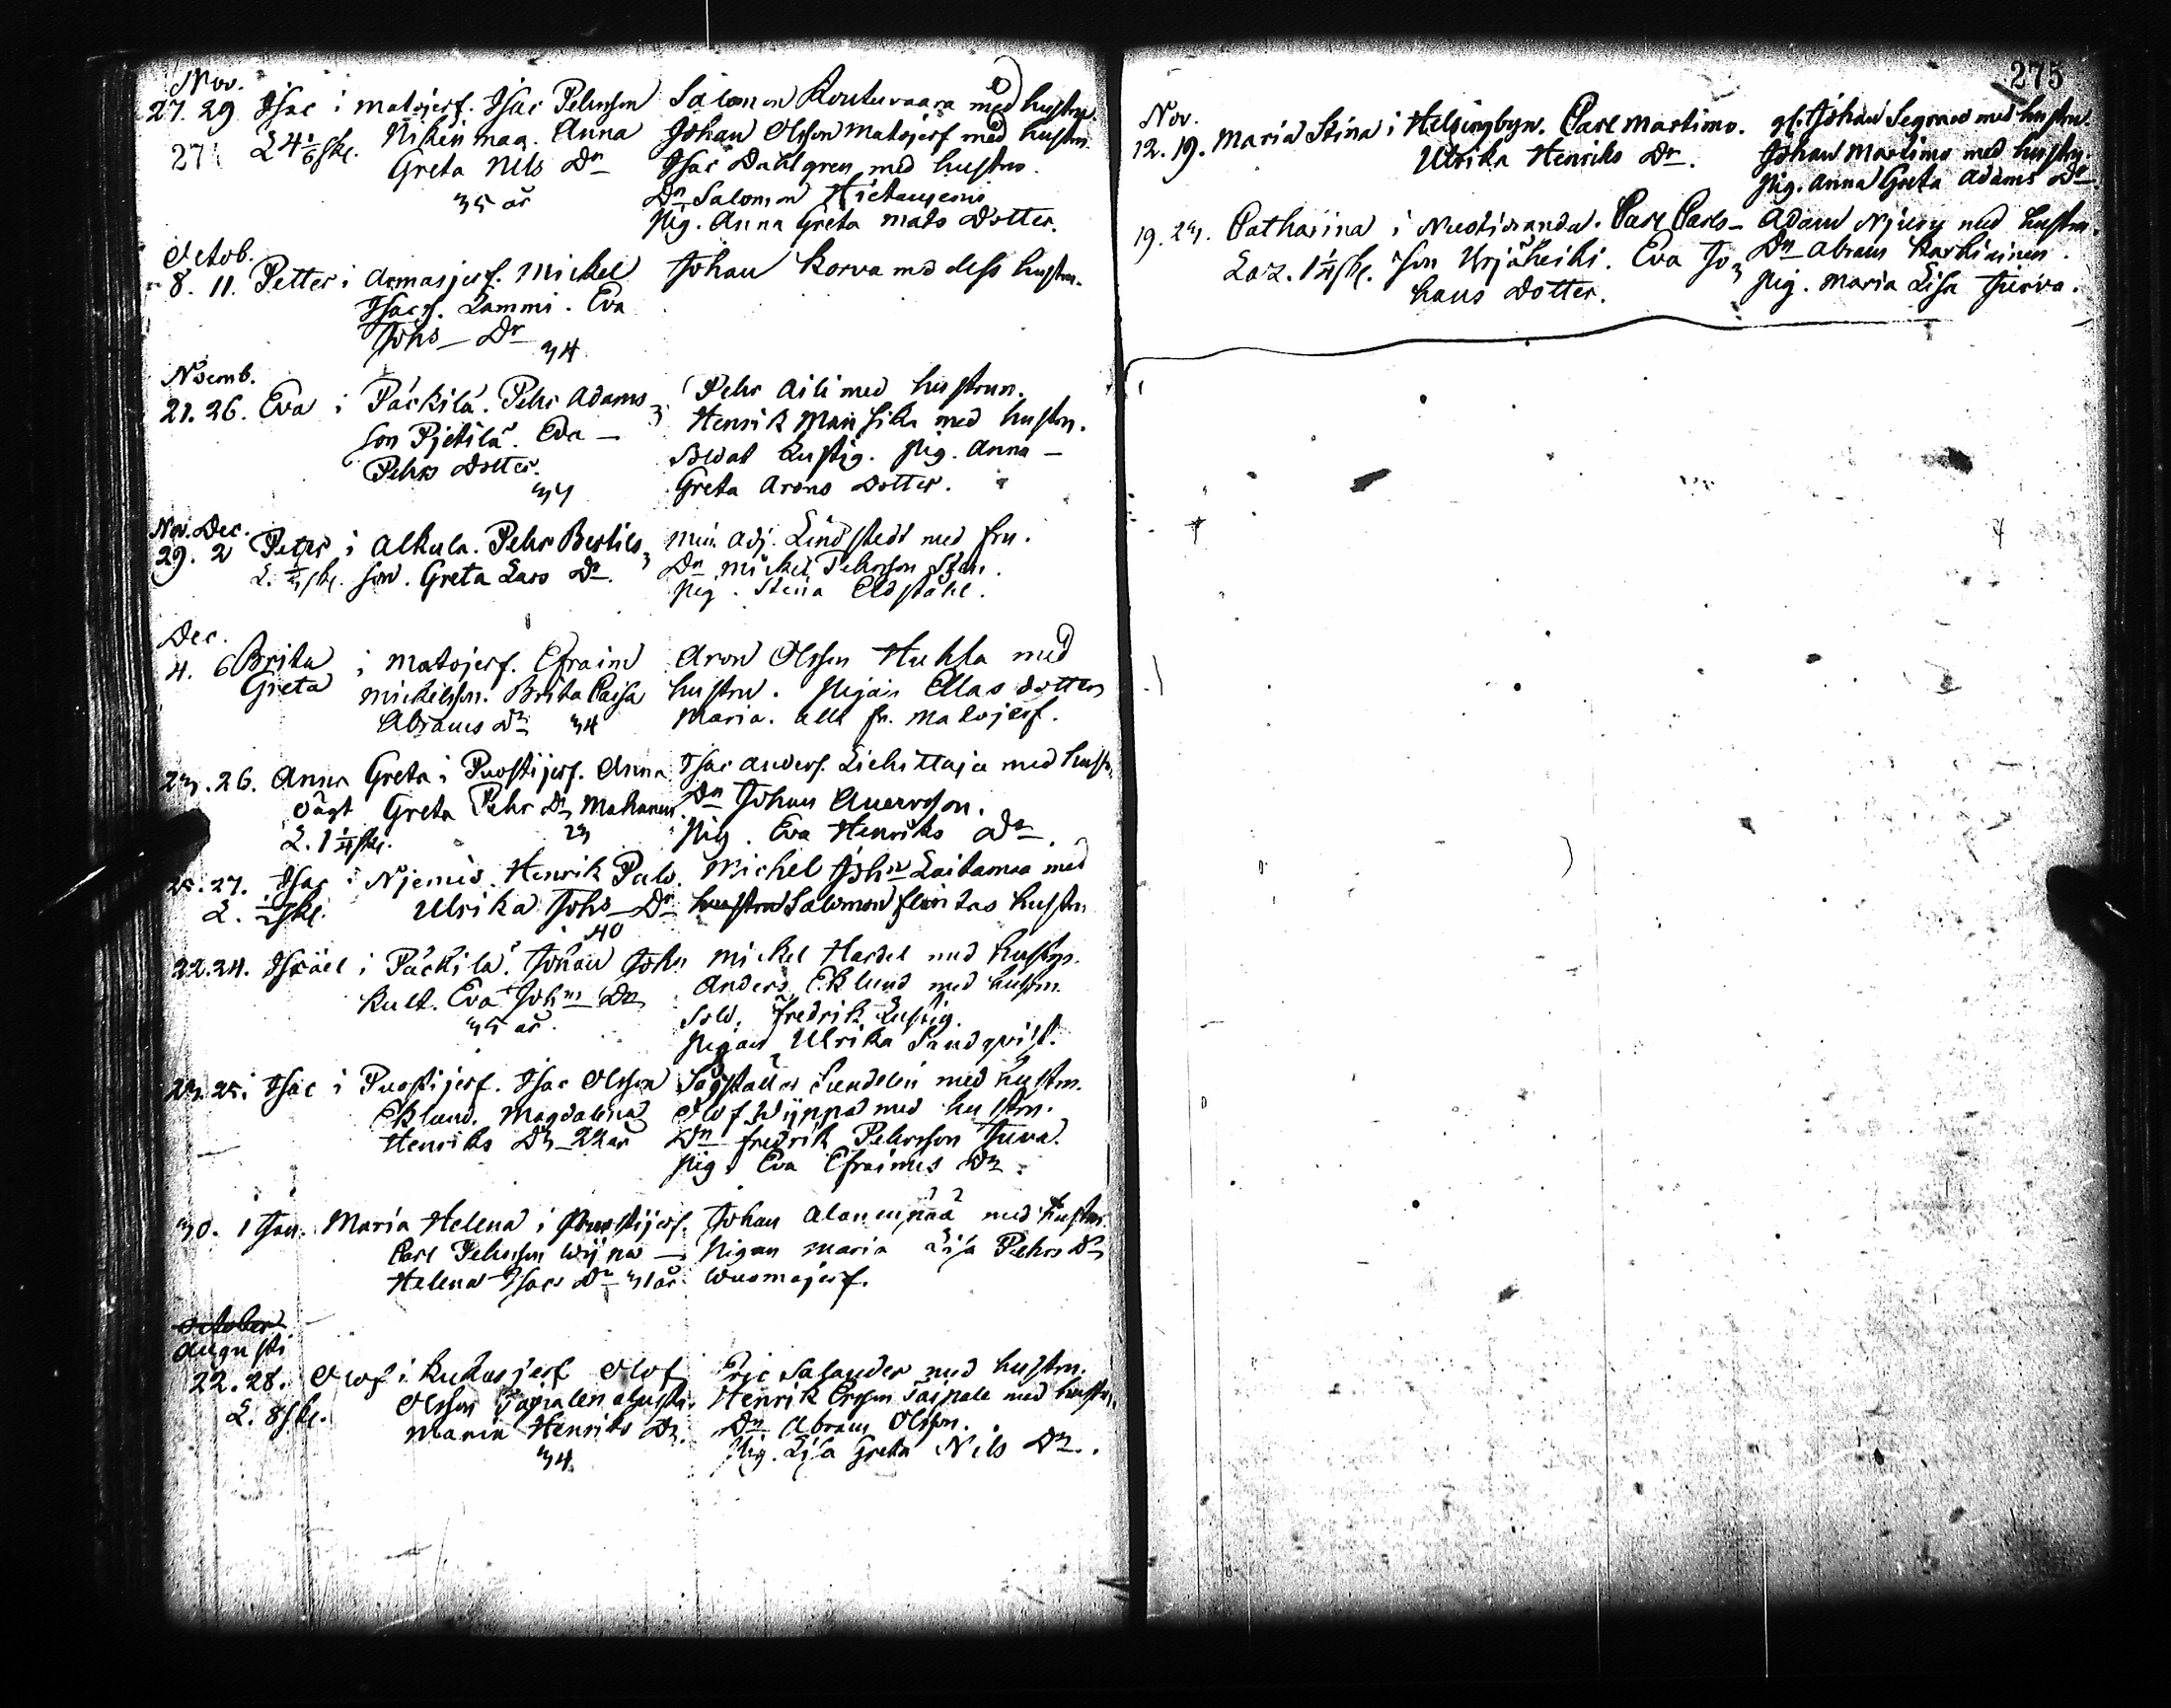 Nov.
27. 29 Isac i Matojerf. Isac Pehrsson Salomon Koutuvaara med hustru
27. L 4 1/6 sk. Niskin maa. Anna Johan Olsson Matojerf med hustru
Greta Nils Dr Isac Dahlgren med hustru.
35 år Dn Salomon Hietaniemi
Pig. Anna Greta Mats Dotter.
Octob.
8. 11. Petter i Armasjerf. Mickel Johan Korva med dess hustru.
Isacs. Lammi. Eva
Johs Dr
34
Novemb.
21. 26. Eva i Päckilä. Pehr Adams Pehr Aili med hustrun.
son Pjetilä. Eva Henrik med hustru.
Pehrs Dotter. Soldat Lustig. Pig. Anna
34 Greta Arons Dotter.
Nov. Dec.
29. 2 Petter i Alkula. Pehr Bertils Min. Adj. Lindstedt med fru.
L. 1/2 sk. son. Greta Lars Dr. Dn Mickel Pehrsson
Pig. Stina Eldståhl.
Dec.
4. 6 Brita i Matojerf. Efraim Aron Olsson Huhta med
Greta Mickelsson. Brita Caisa hustru. Pigan Ellas Dotter
Abrams Dr 34 Maria. alla fr. Matojerf.
23. 26. Anna Greta i Puostijerf. Anna Isac Anders. Liehittaja med hustru
oägt Greta Pehr Dr Dn Johan
L. 1 1/4 sk. 23 Pig. Eva Henriks Dr.
25. 27. Isac i Njemis. Henrik Palo. Michel Johns Laitamaa med
L. 1/2 sk. Ulrika Johs Dr hustru Salomon hustru
40
22. 24. Israel i Päckilä. Johan Johs Mickel Hardel med hustru.
Kult. Eva Johns Dr Anders Eklund med hustru
35 år. Sold. Fredrik Lustig.
Pigan Ulrika Sandqvist.
23. 25. Isac i Puostijerf. Isac Olsson Sågställar Sundelin med hustru.
Eklund. Magdalena Olof Wyppa med hustru.
Henriks Dr 22 år Dn Fredrik Pehrsson Juva.
Pig. Eva Efraims Dr.
30. 1 Jan. Maria Helena i Puostijerf. Johan Alanenpää med hustru.
Carl Pehrsson Pigan Maria Lisa Pehrs Dr
Helena Isacs Dr 31 år Wuomajerf.
October
Augusti
22. 28. Olof i Kukasjerf Olof Eric Salander med hustru.
L. 8 sk. Olsson Henrik Ersson med hustru.
Maria Henriks Dr. Dn Abram Olsson.
34 Pig. Lisa Greta Nils Dr.
275
Nov.
12. 19. Maria Stina i Helsingbyn. Carl Martimo. gl. Johan Segnad med hustru.
Ulrika Henriks Dr. Johan Martimo med hustru.
Pig. Anna Greta Adams Dr.
19. 23. Catharina i Nuotioranda. Carl Carls- Adam med hustru.
1 1/4 sk. son Yrjäheiki. Eva Jo Dn Abram Karhiainen.
hans Dotter. Pig. Maria Lisa